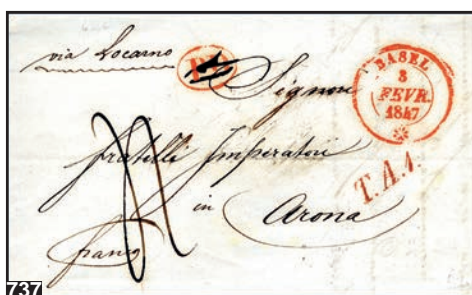 via Locarno
BASEL
3
FEVR.
1847
Signori
fratelli Imperatori
T.A.1.
in Arona
franco
737